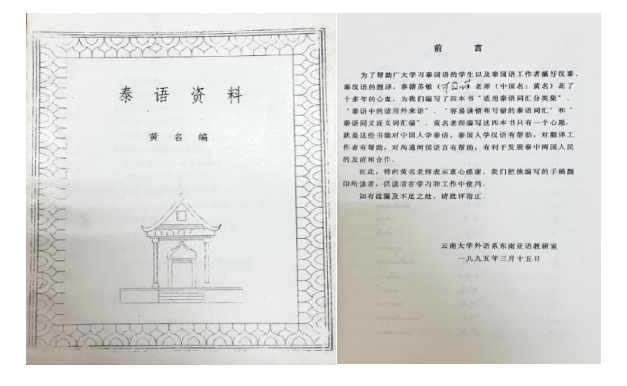 泰语资料
黄名编
前言
为了帮助广大学习泰国语的学生以及泰国语工作者搞好汉泰、
泰汉语的翻译，泰籍苏敏（สุมิตร์老师（中国名：黄名）花了
十多年的心血，为我们编写了四本书“适用泰语词汇分类集”、
“泰语中的适用外来语”、“容易读错和写错的泰语词汇”和“
泰语同义近义词汇编”。黄名老师编写这四本书只有一个心愿，
就是这些书能对中国人学泰语，泰国人学汉语有帮助，对翻译工
作者有帮助，对沟通两国语言有帮助，有利于发展泰中两国人民
的友谊和合作。
在此，特向黄名老师表示衷心感谢。我们把他编写的手稿翻
印给读者，供读者在学习和工作中使用。
如有疏漏及不足之处，请批评指正。
云南大学外语系东南亚语教研室
一九九五年三月十五日